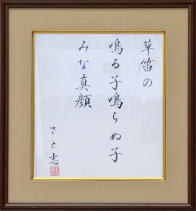 草笛の
鳴る子鳴らぬ子
みな真顔
さと志